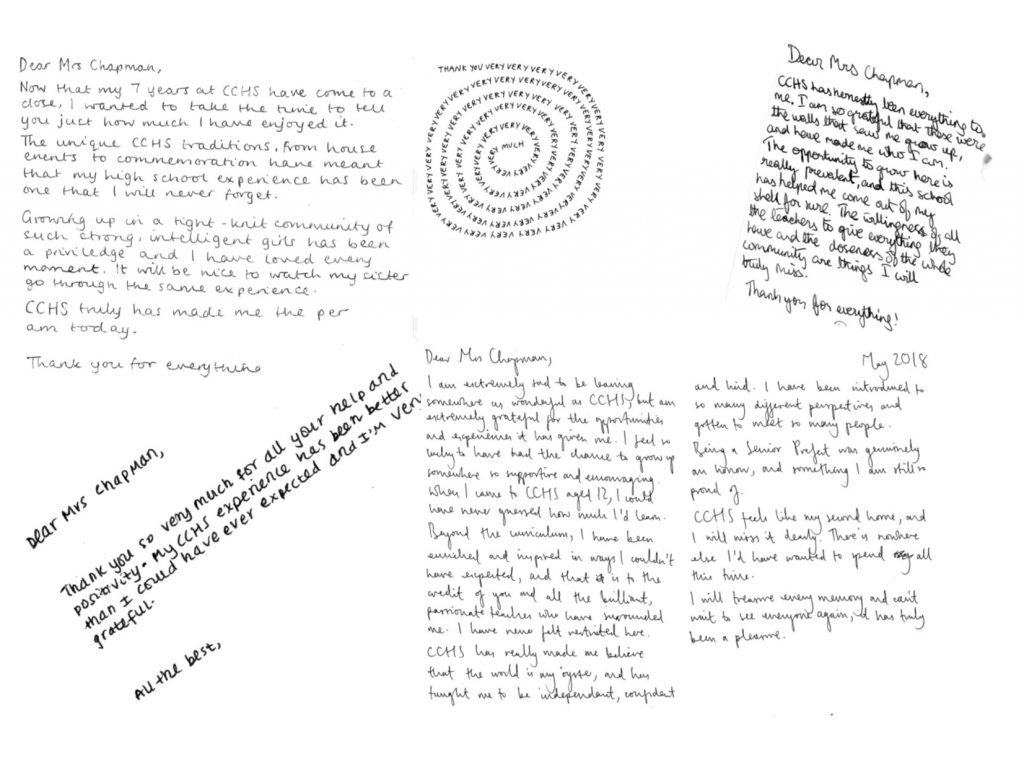 Dear Mrs Chapman,
Now that my 7 years at CCHS have come to a
close, I wanted to take the time to tell
you just how much I have enjoyed it.
The unique CCHS traditions, from house
events to commemoration have meant
that my high school experience has been
one that I will never forget.
Growing up in a tight-knit community of
such strong, intelligent girls has been
a priviledge and I have loved every
moment. It will be nice to watch my sister
go through the same experience.
CCHS truly has made me the per
am today.
Thank you for everything
THANK YOU VERY VERY VERY VERY VERY VERY
VERY MUCH
Dear Mrs Chapman,
CCHS has honestly been everything to
me. I am so grateful that these were
the walls that saw me grow up,
and have made me who I am.
The opportunity to grow here is
really prevalent, and this school
has helped me come out of my
shell for sure. The willingness of all
the teachers to give everything they
have and the closeness of the whole
community are things I will
truly miss.
Thank you for everything!
Dear Mrs Chapman,
Thank you so very much for all your help and
positivity. My CCHS experience has been better
than I could have ever expected and I'm very
grateful.
All the best,
Dear Mrs Chapman,
I am extremely sad to be leaving
somewhere as wonderful as CCHS, but am
extremely grateful for the opportunities
and experiences it has given me. I feel so
lucky to have had the chance to grow up
somewhere so supportive and encouraging.
When I came to CCHS aged 12, I could
have never guessed how much I'd learn.
Beyond the curriculum, I have been
enriched and inspired in ways I couldn't
have expected, and that is to the
credit of you and all the brilliant,
passionate teachers who have surrounded
me. I have never felt restricted here.
CCHS has really made me believe
that the world is my oyster, and has
taught me to be independent, confident
May 2018
and kind. I have been introduced to
so many different perspectives and
gotten to meet so many people.
Being a Senior Prefect was genuinely
an honour, and something I am still so
proud of.
CCHS feels like my second home, and
I will miss it dearly. There is nowhere
else I'd have wanted to spend all
this time.
I will treasure every memory and can't
wait to see everyone again, it has truly
been a pleasure.